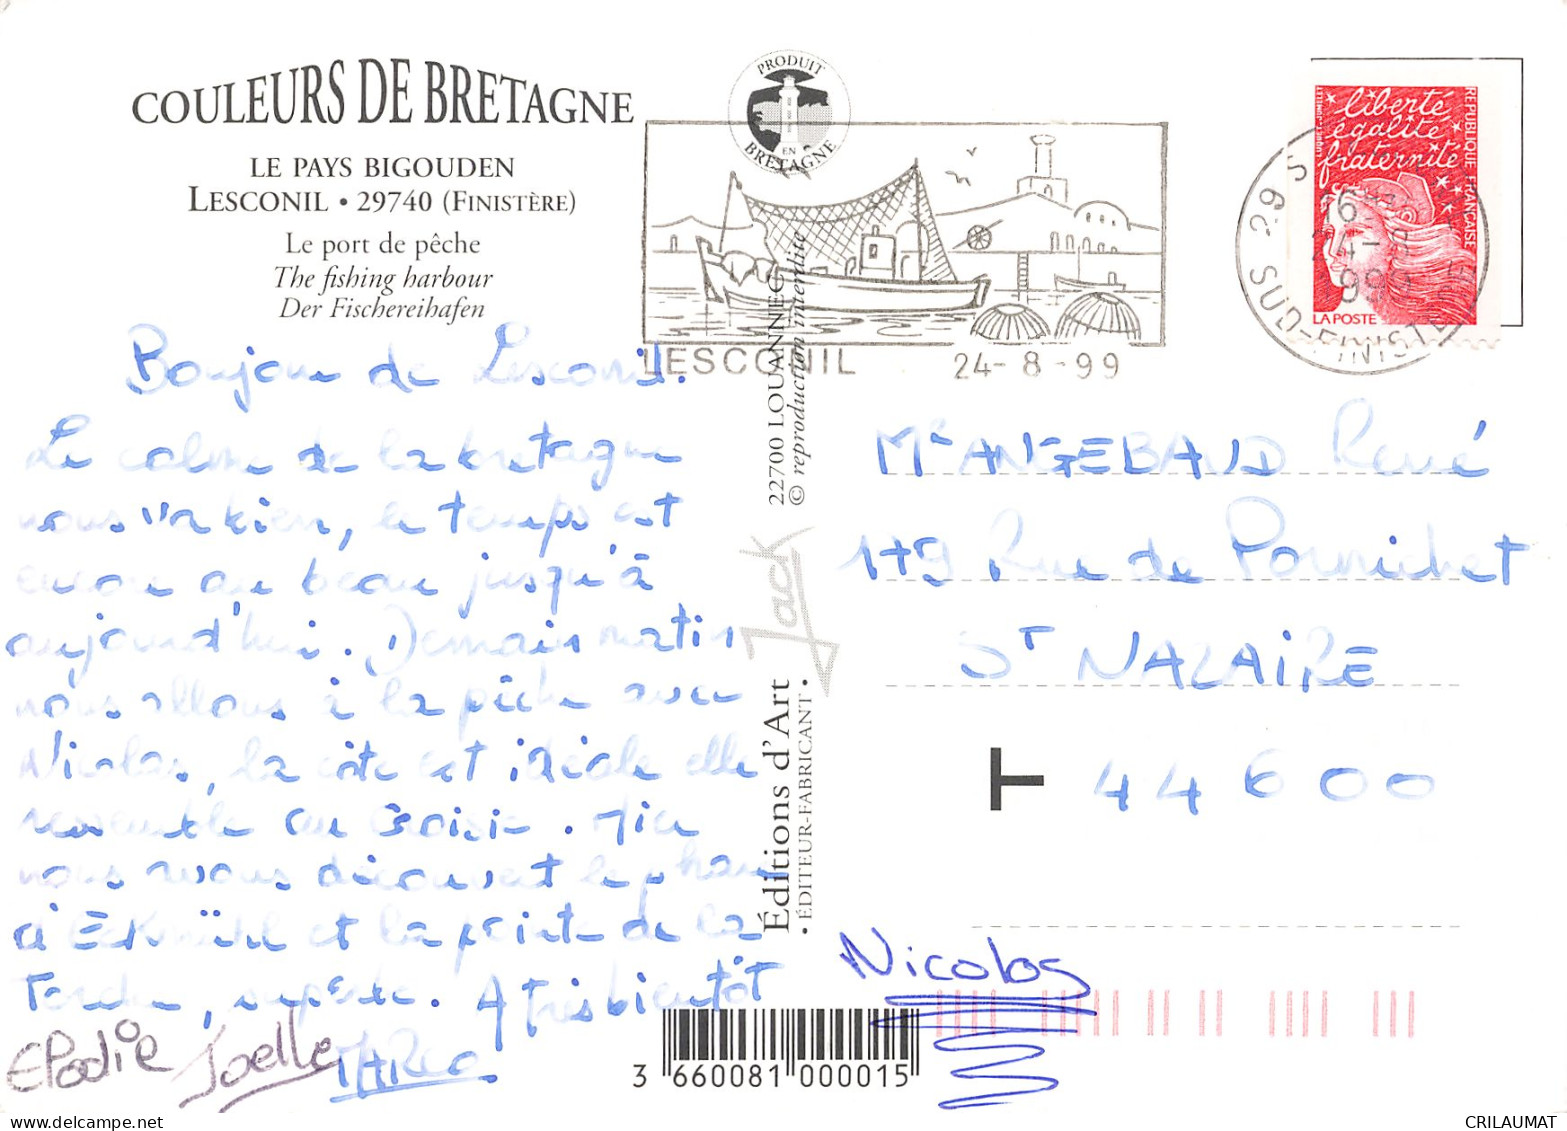 COULEURS DE BRETAGNE
LE PAYS BIGOUDEN
LESCONIL • 29740 (FINISTÈRE)
Le port de pêche
The fishing harbour
Der Fischereihafen
Bonjour de Lesconil.
Le calme de la bretagne
nous va bien, le temps est
encore au beau jusqu'à
aujourd'hui. Demain matin
nous allons à la pêche avec
Nicolas, la côte est idéale elle
ressemble au Croisic. Hier
nous avons découvert le phare
d'Eckmühl et la pointe de la
Torche, superbe. A très bientôt
Elodie Joelle MARC
Nicolas
PRODUIT
EN
BRETAGNE
LESCONIL 24-8-99
22700 LOUANNEC
© reproduction interdite
Jack
Éditions d'Art
• ÉDITEUR-FABRICANT •
3 660081 000015
liberté
égalité
fraternité
RÉPUBLIQUE FRANÇAISE
LA POSTE
29 SUD-FINISTERE
Mr ANGEBAUD René
119 Rue de Pornichet
ST NAZAIRE
T 44600
CRILAUMAT